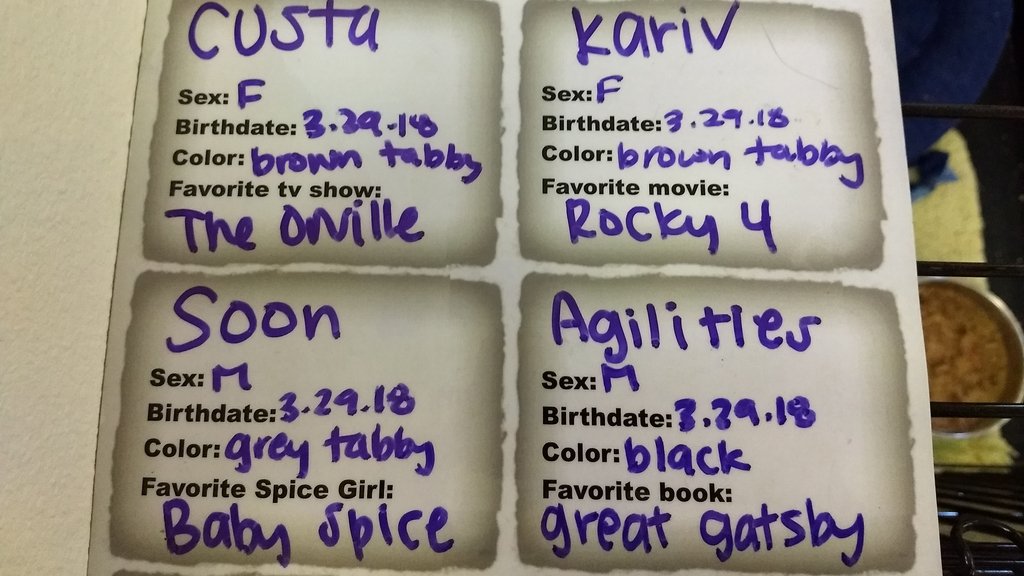 Custa
Sex: F
Birthdate: 3.29.18
Color: brown tabby
Favorite tv show:
The Orville
Kariv
Sex: F
Birthdate: 3.29.18
Color: brown tabby
Favorite movie:
Rocky 4
Soon
Sex: M
Birthdate: 3.29.18
Color: grey tabby
Favorite Spice Girl:
Baby Spice
Agilities
Sex: M
Birthdate: 3.29.18
Color: black
Favorite book:
great gatsby